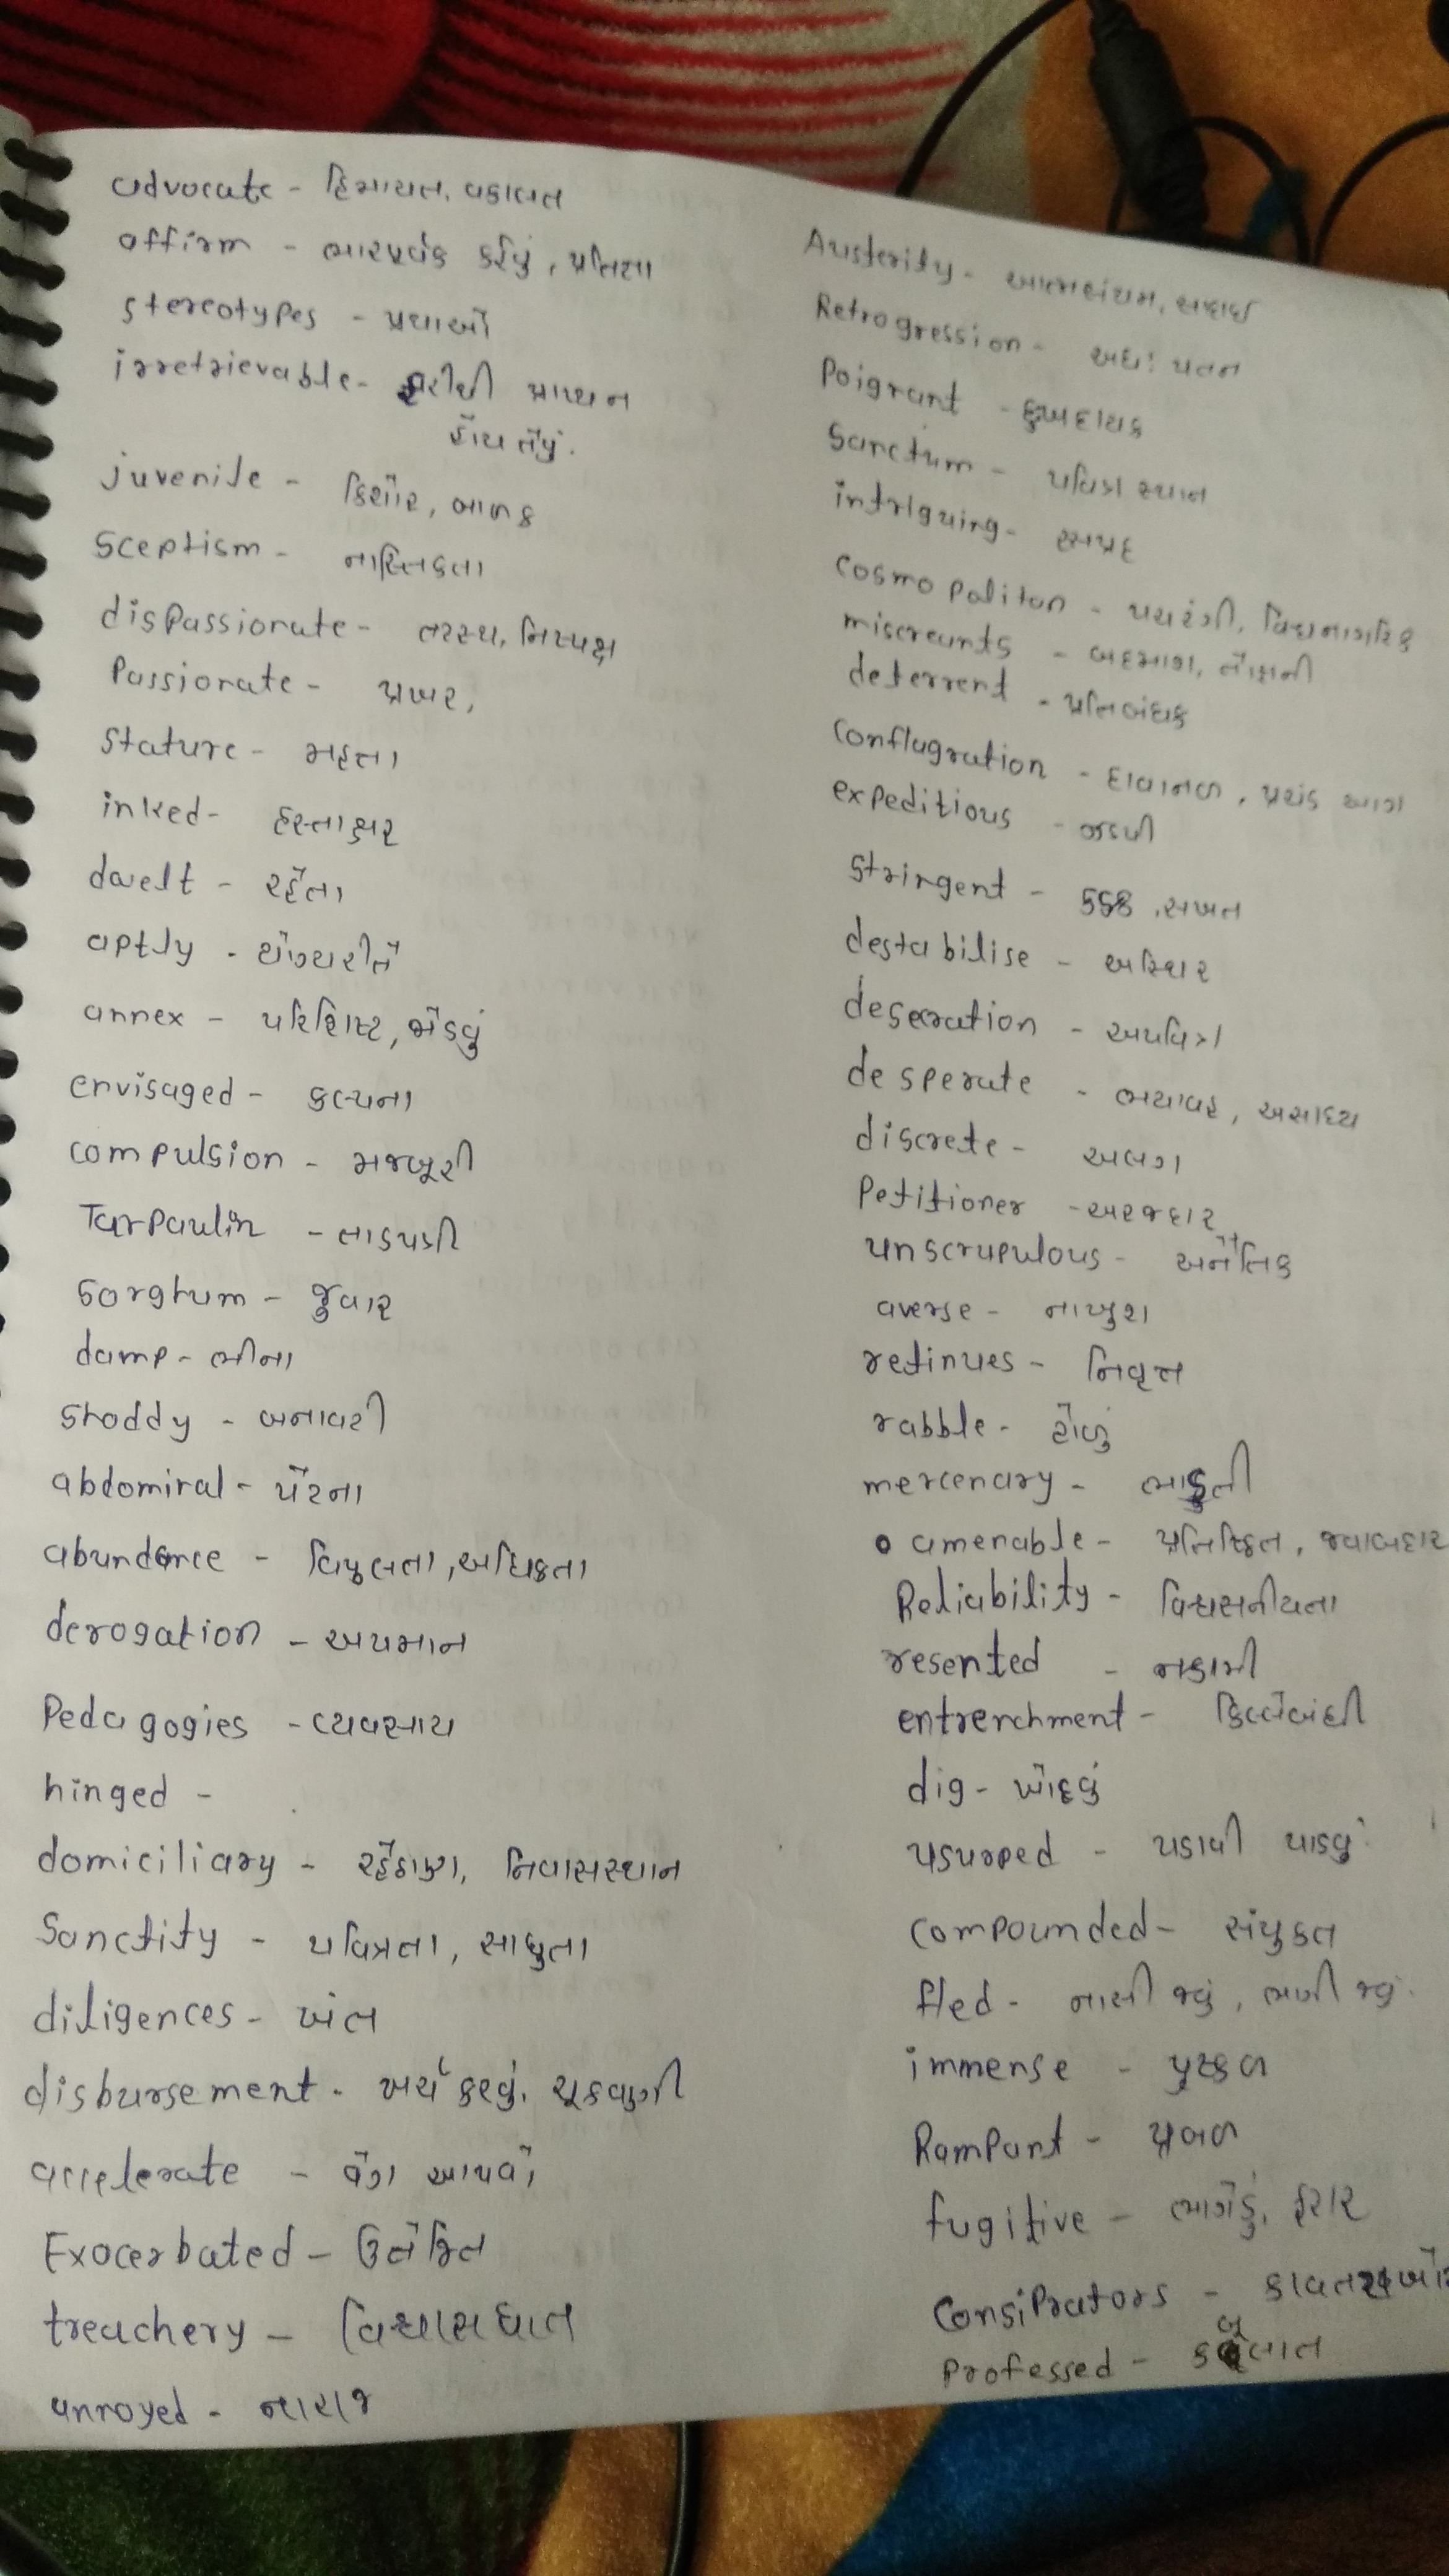 advocate - હિમાયત, વકાલત
affirm - ભારપૂર્વક કહેવું, પ્રતિજ્ઞા
stereotypes - પ્રથાઓ
irretrievable - ફરીથી પ્રાપ્ય ન
હોય તેવું.
juvenile - કિશોર, બાળક
Sceptism - નાસ્તિકતા
dispassionate - તટસ્થ, નિષ્પક્ષ
Passionate - પ્રખર,
Stature - મહત્તા
inked - હસ્તાક્ષર
dwelt - રહેતા
aptly - યોગ્ય રીતે
annex - પરિશિષ્ટ, જોડવું
envisaged - કલ્પના
compulsion - મજબૂરી
Tarpaulin - તાડપત્રી
Sorghum - જુવાર
damp - ભીના
Shoddy - બનાવટી
abdominal - પેટના
abundance - વિપુલતા, અધિકતા
derogation - અપમાન
Pedagogies - વ્યવસાય
hinged -
domiciliary - રહેઠાણ, નિવાસસ્થાન
Sanctity - પવિત્રતા, સાધુતા
diligences - ખંત
disbursement - ખર્ચ કરવું, ચૂકવણી
accelerate - વેગ આપવો
Exacerbated - ઉત્તેજિત
treachery - વિશ્વાસઘાત
annoyed - નારાજ
Austerity - આત્મસંયમ, સાદાઈ
Retrogression - અધઃપતન
Poignant - દુખદાયક
Sanctum - પવિત્ર સ્થાન
intriguing - રસપ્રદ
cosmopolitan - પચરંગી, વિશ્વનાગરિક
miscreants - બદમાશ, તોફાની
deterrent - પ્રતિબંધક
Conflagration - દાવાનળ, પ્રચંડ આગ
expeditious - જડપી
Stringent - કડક, સખત
destabilise - અસ્થિર
desecration - અપવિત્ર
desperate - ભયાવહ, અસાધ્ય
discrete - અલગ
Petitioner - અરજદાર
unscrupulous - અનૈતિક
averse - નાખુશ
retinues - નિવૃત્ત
rabble - ટોળું
mercenary - ભાડુતી
amenable - જવાબદાર
Reliability - વિશ્વસનીયતા
resented - નકામી
entrenchment - કિલ્લેબંધી
dig - ખોદવું
usurped - પડાવી પાડવું
Compounded - સંયુક્ત
fled - નાસી જવું, ભાગી જવું.
immense - પુષ્કળ
Rampant - પ્રબળ
fugitive - ભાગેડું, ફરાર
Consiprators -
Professed - કબૂલાત